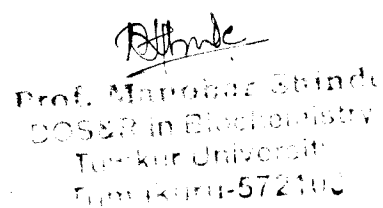 Prof. Manohar Shinde
DOS&R in Biochemistry
Tumkur University
Tumakuru-572103